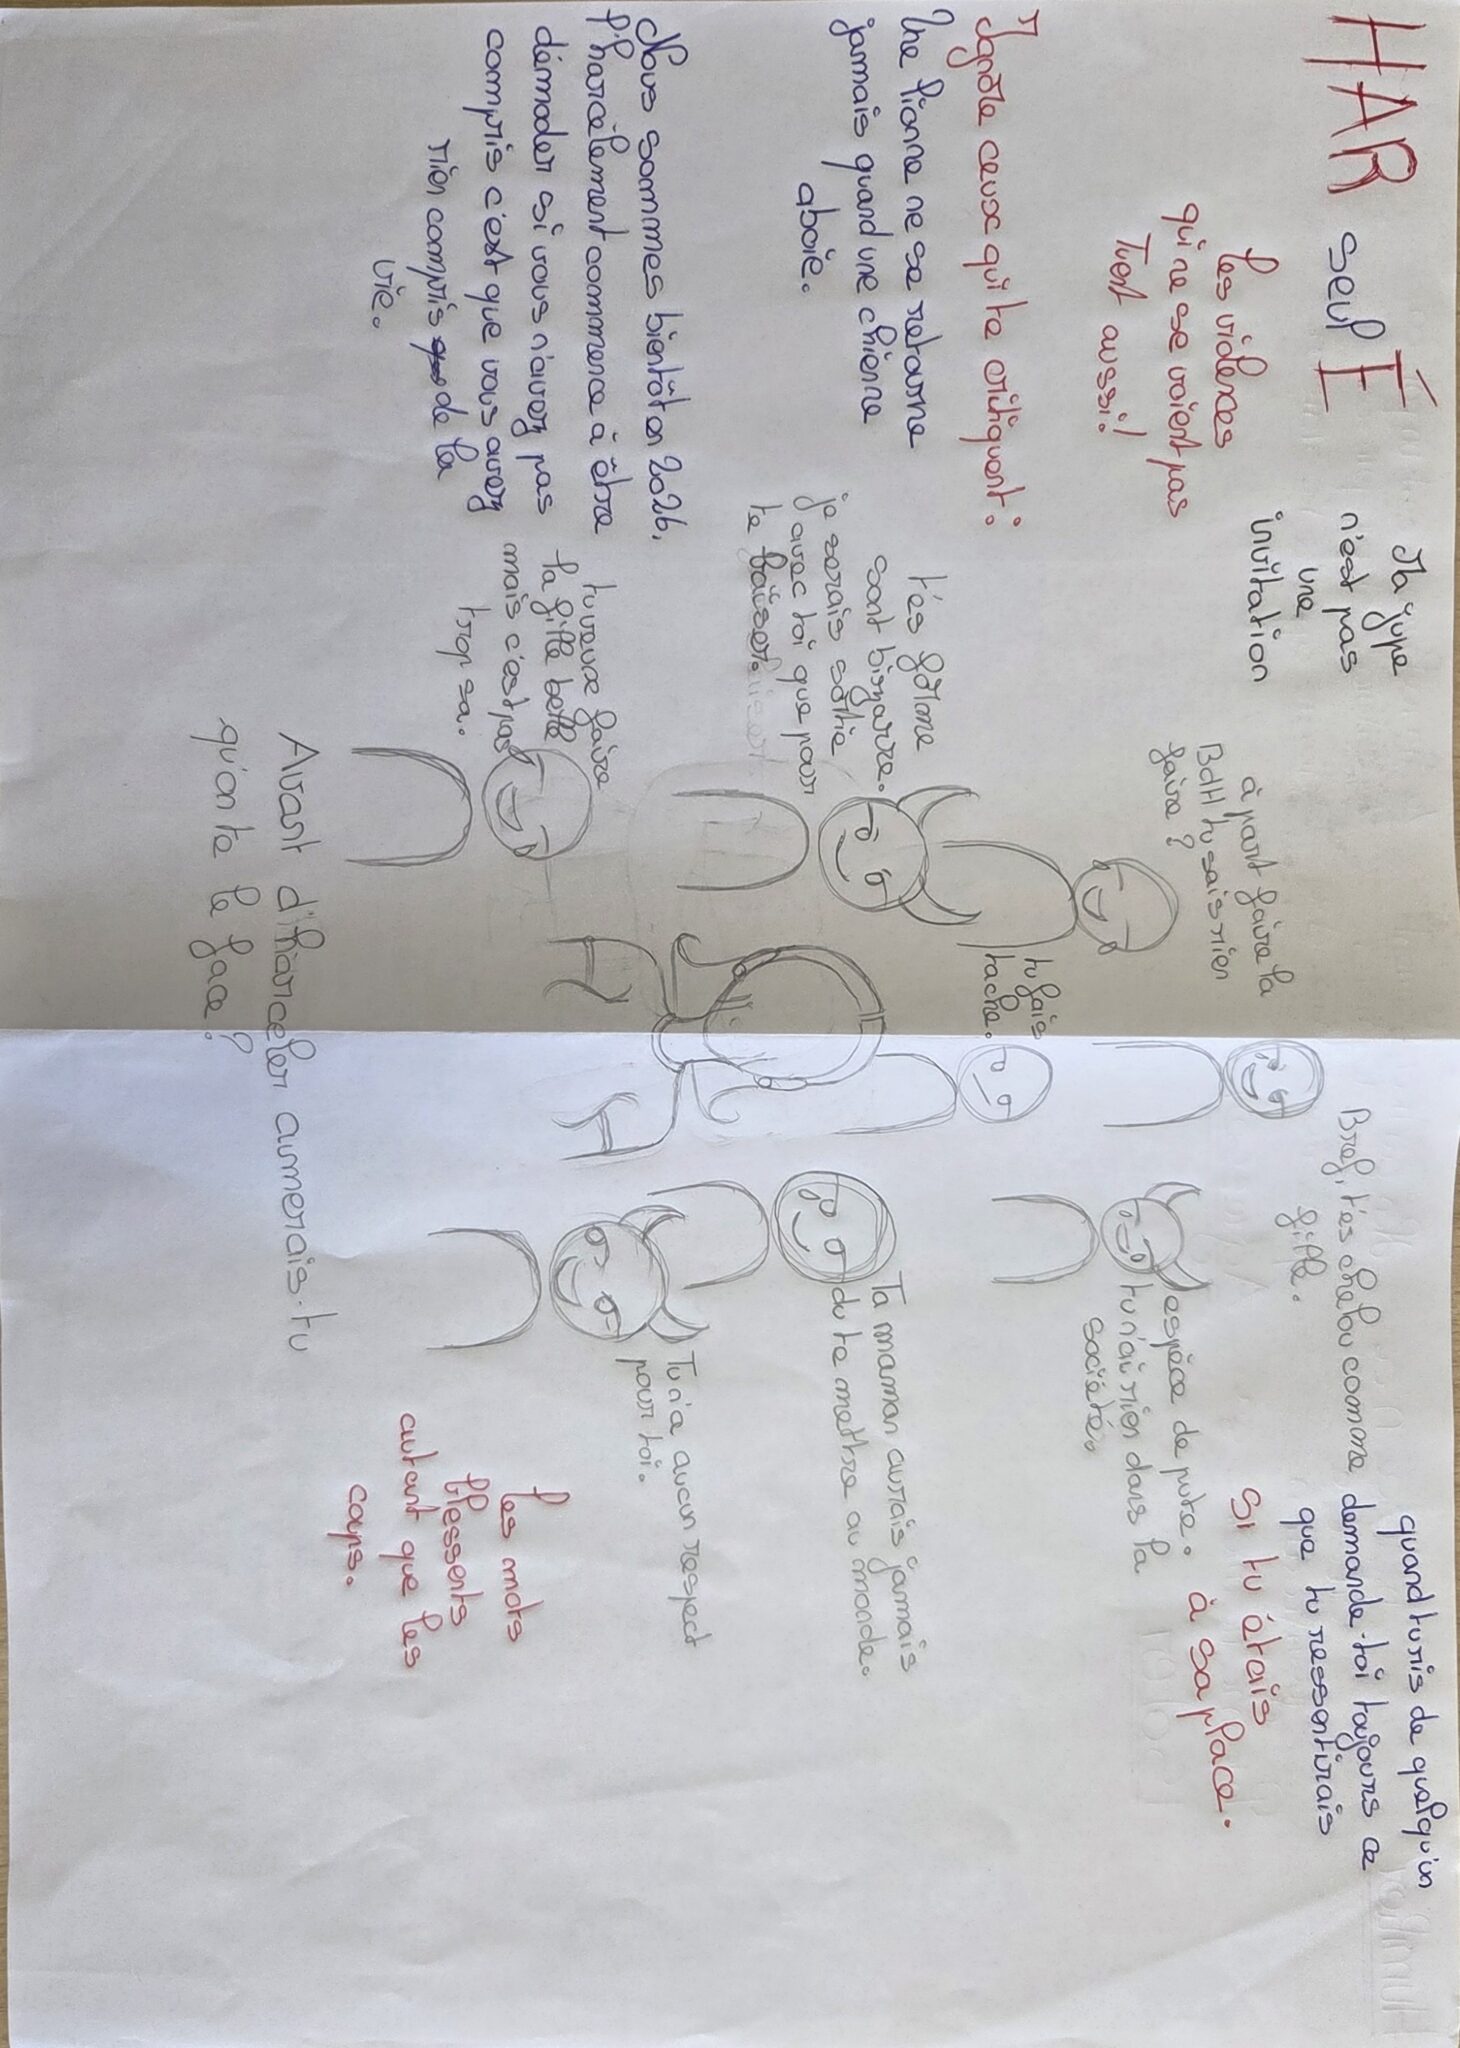 HAR seul É
Les violences
qui ne se voient pas
Tuent aussi!
Ma jupe
n'est pas
une
invitation
Ignore ceux qui te critiquent:
Une lionne ne se retourne
jamais quand une chienne
aboie.
Nous sommes bientôt en 2026,
l'harcèlement commence à être
démoder si vous n'avez pas
compris c'est que vous avez
rien compris de la
vie.
à part faire la
BDH tu sais rien
faire?
tu fais
tache.
t'es forme
sont bizarre.
je serais sortie
avec toi que pour
te baiser.
tu veux faire
la fille belle
mais c'est pas
trop sa.
Bref, t'es chelou comme
fille.
espèce de pute.
tu n'ai rien dans la
société.
Ta maman aurais jamais
du te mettre au monde.
Tu n'a aucun respect
pour toi.
quand tu ris de quelqu'un
demande-toi toujours ce
que tu ressentirais
SI tu étais
à sa place.
Les mots
blessents
autant que les
coups.
Avant d'harceler aimerais-tu
qu'on te le face?